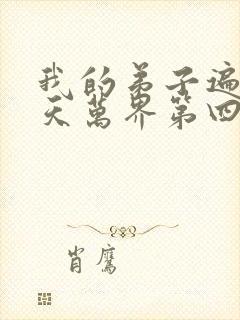 我的弟子遍
天萬界第四
肖鷹